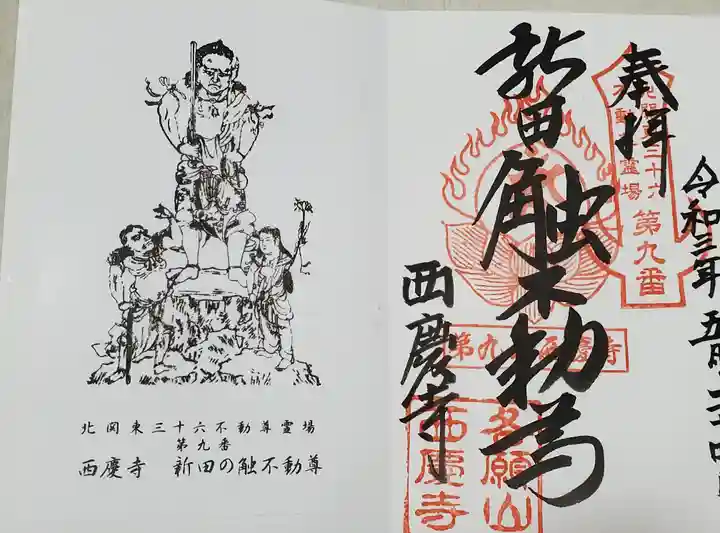 北関東三十六不動尊霊場
第九番
西慶寺　新田の触不動尊
奉拝
令和三年五月二十四日
北関東三十六
不動尊霊場
第九番
新田触不動尊
西慶寺
第九 西慶寺
西慶寺